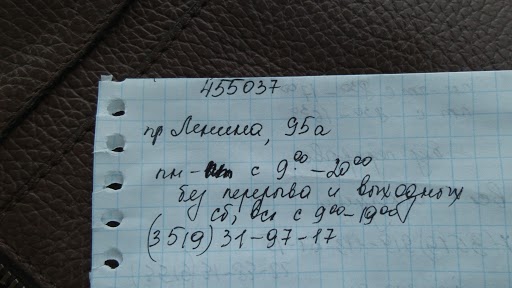 455037
пр Ленина, 95а
пн-пт с 9⁰⁰-20⁰⁰
без перерыва и выходных
сб, вс с 9⁰⁰-19⁰⁰
(3519) 31-97-17